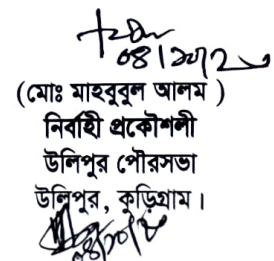 (মোঃ মাহবুবুল আলম )
নির্বাহী প্রকৌশলী
উলিপুর পৌরসভা
উলিপুর, কুড়িগ্রাম।